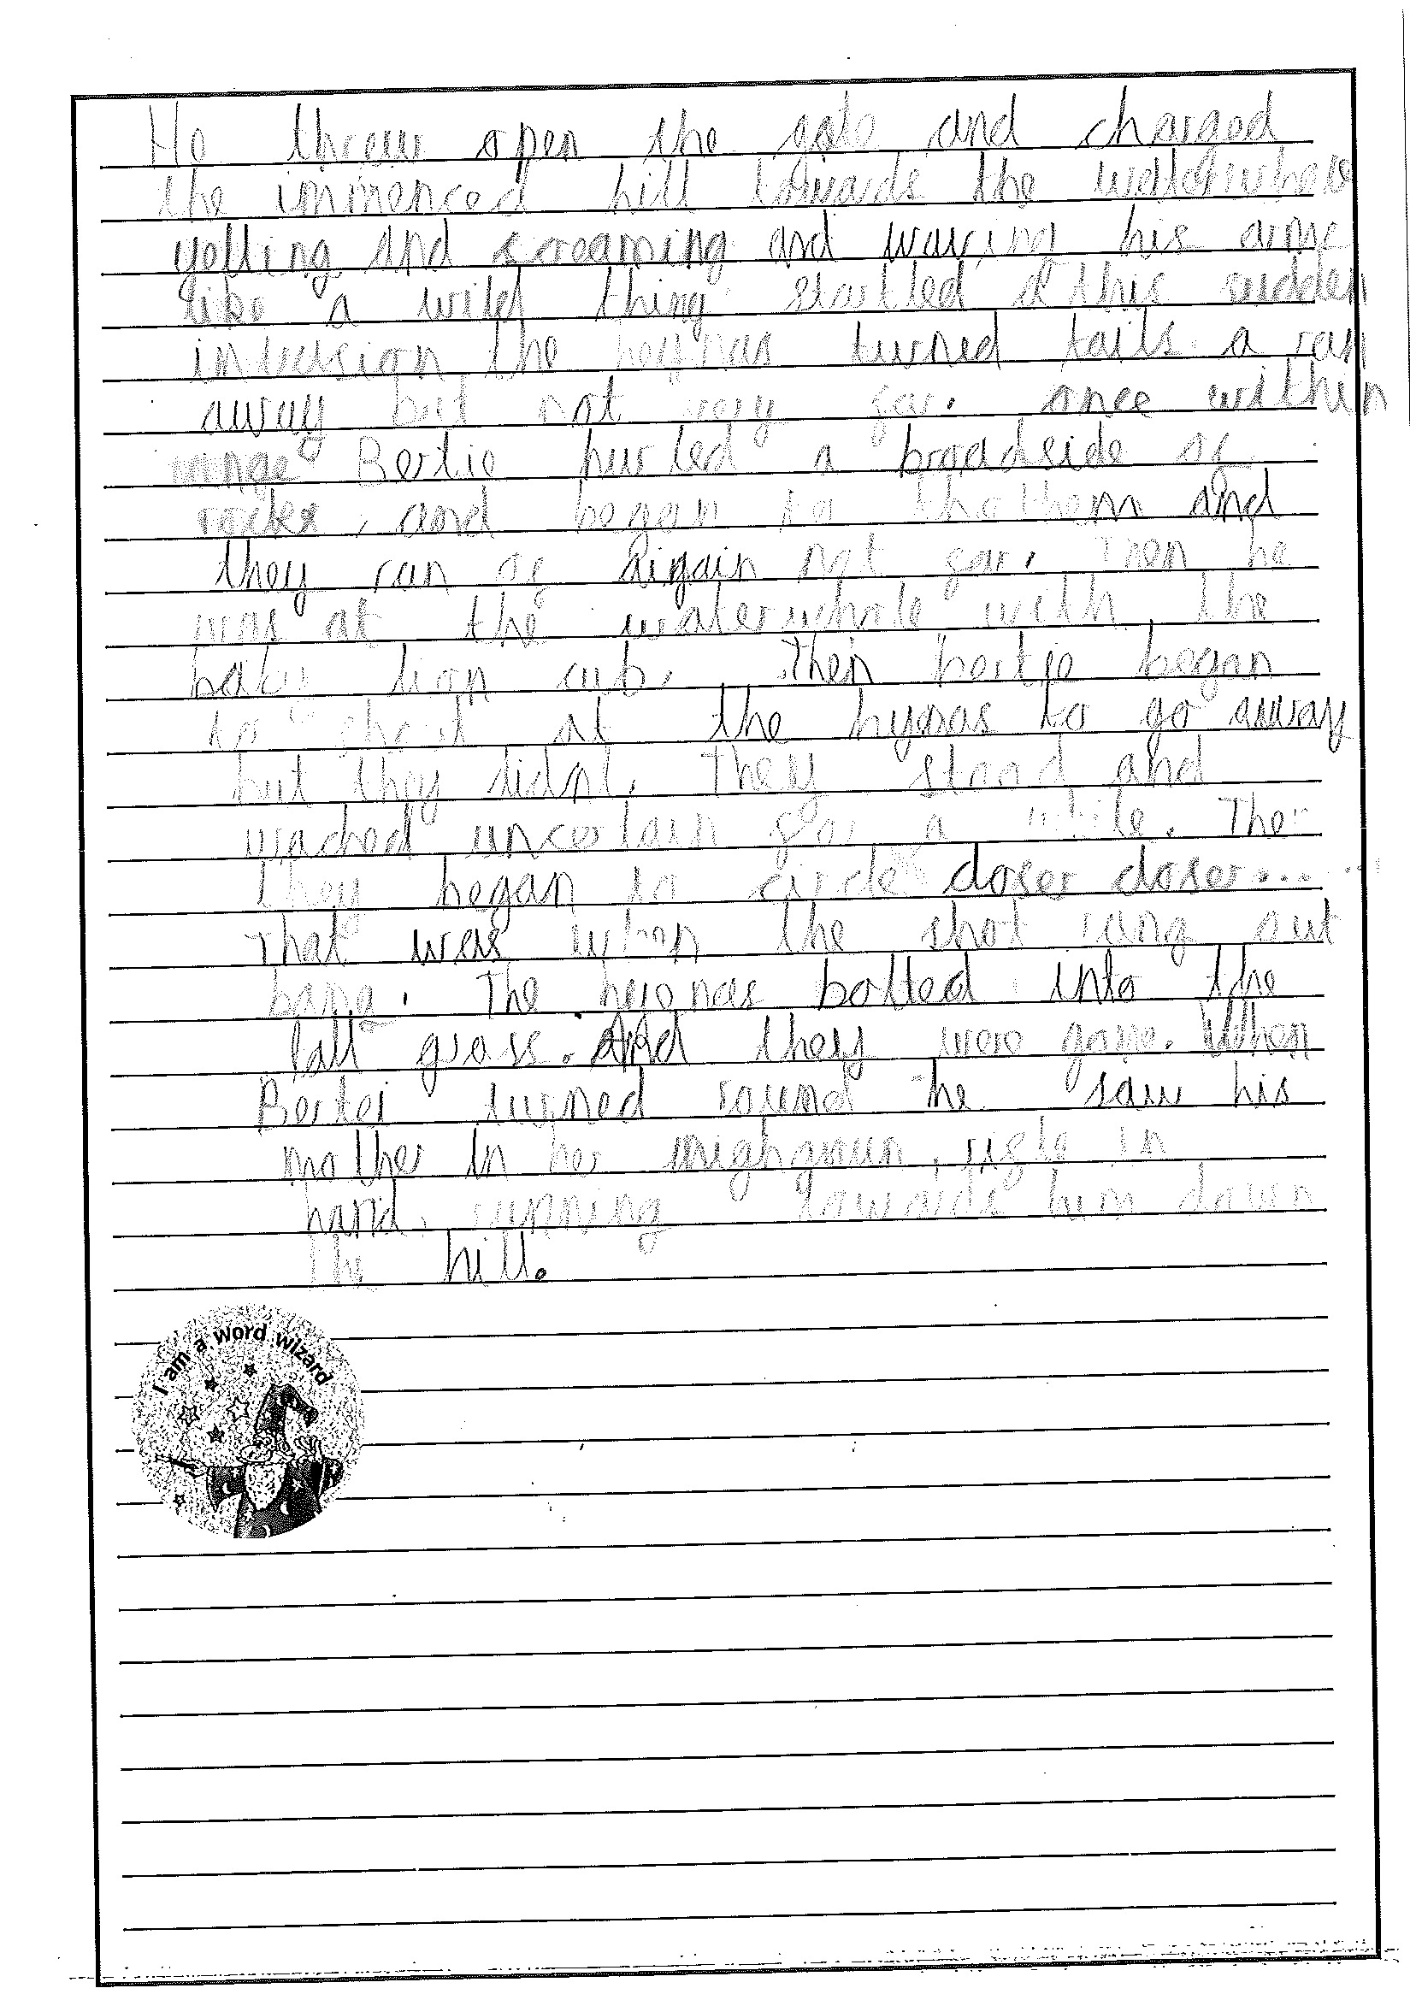 He threw open the gate and charged
the immenced hill towards the waterwhole
yelling and screaming and waving his arms
like a wild thing. startled at this sudden
intrusion the heynas turned tails a ran
away but not very far. once within
range Bertie hurled a broadside of
rocks, and began to them and
they ran of aigain not far. Then he
was at the waterwhole with the
baby lion cub. Then bertie began
to shout at the hynas to go away
but they didnt. They stood and
wached uncertain for a while. Then
they began to circle closer closer......
That was when the shot rang out
bang. The heyonas bolted into the
tall grass. And they were gone. When
Bertei turned round he saw his
mother In her nighgoun, rifle in
hand, running towards him down
the hill.
I am a word wizard